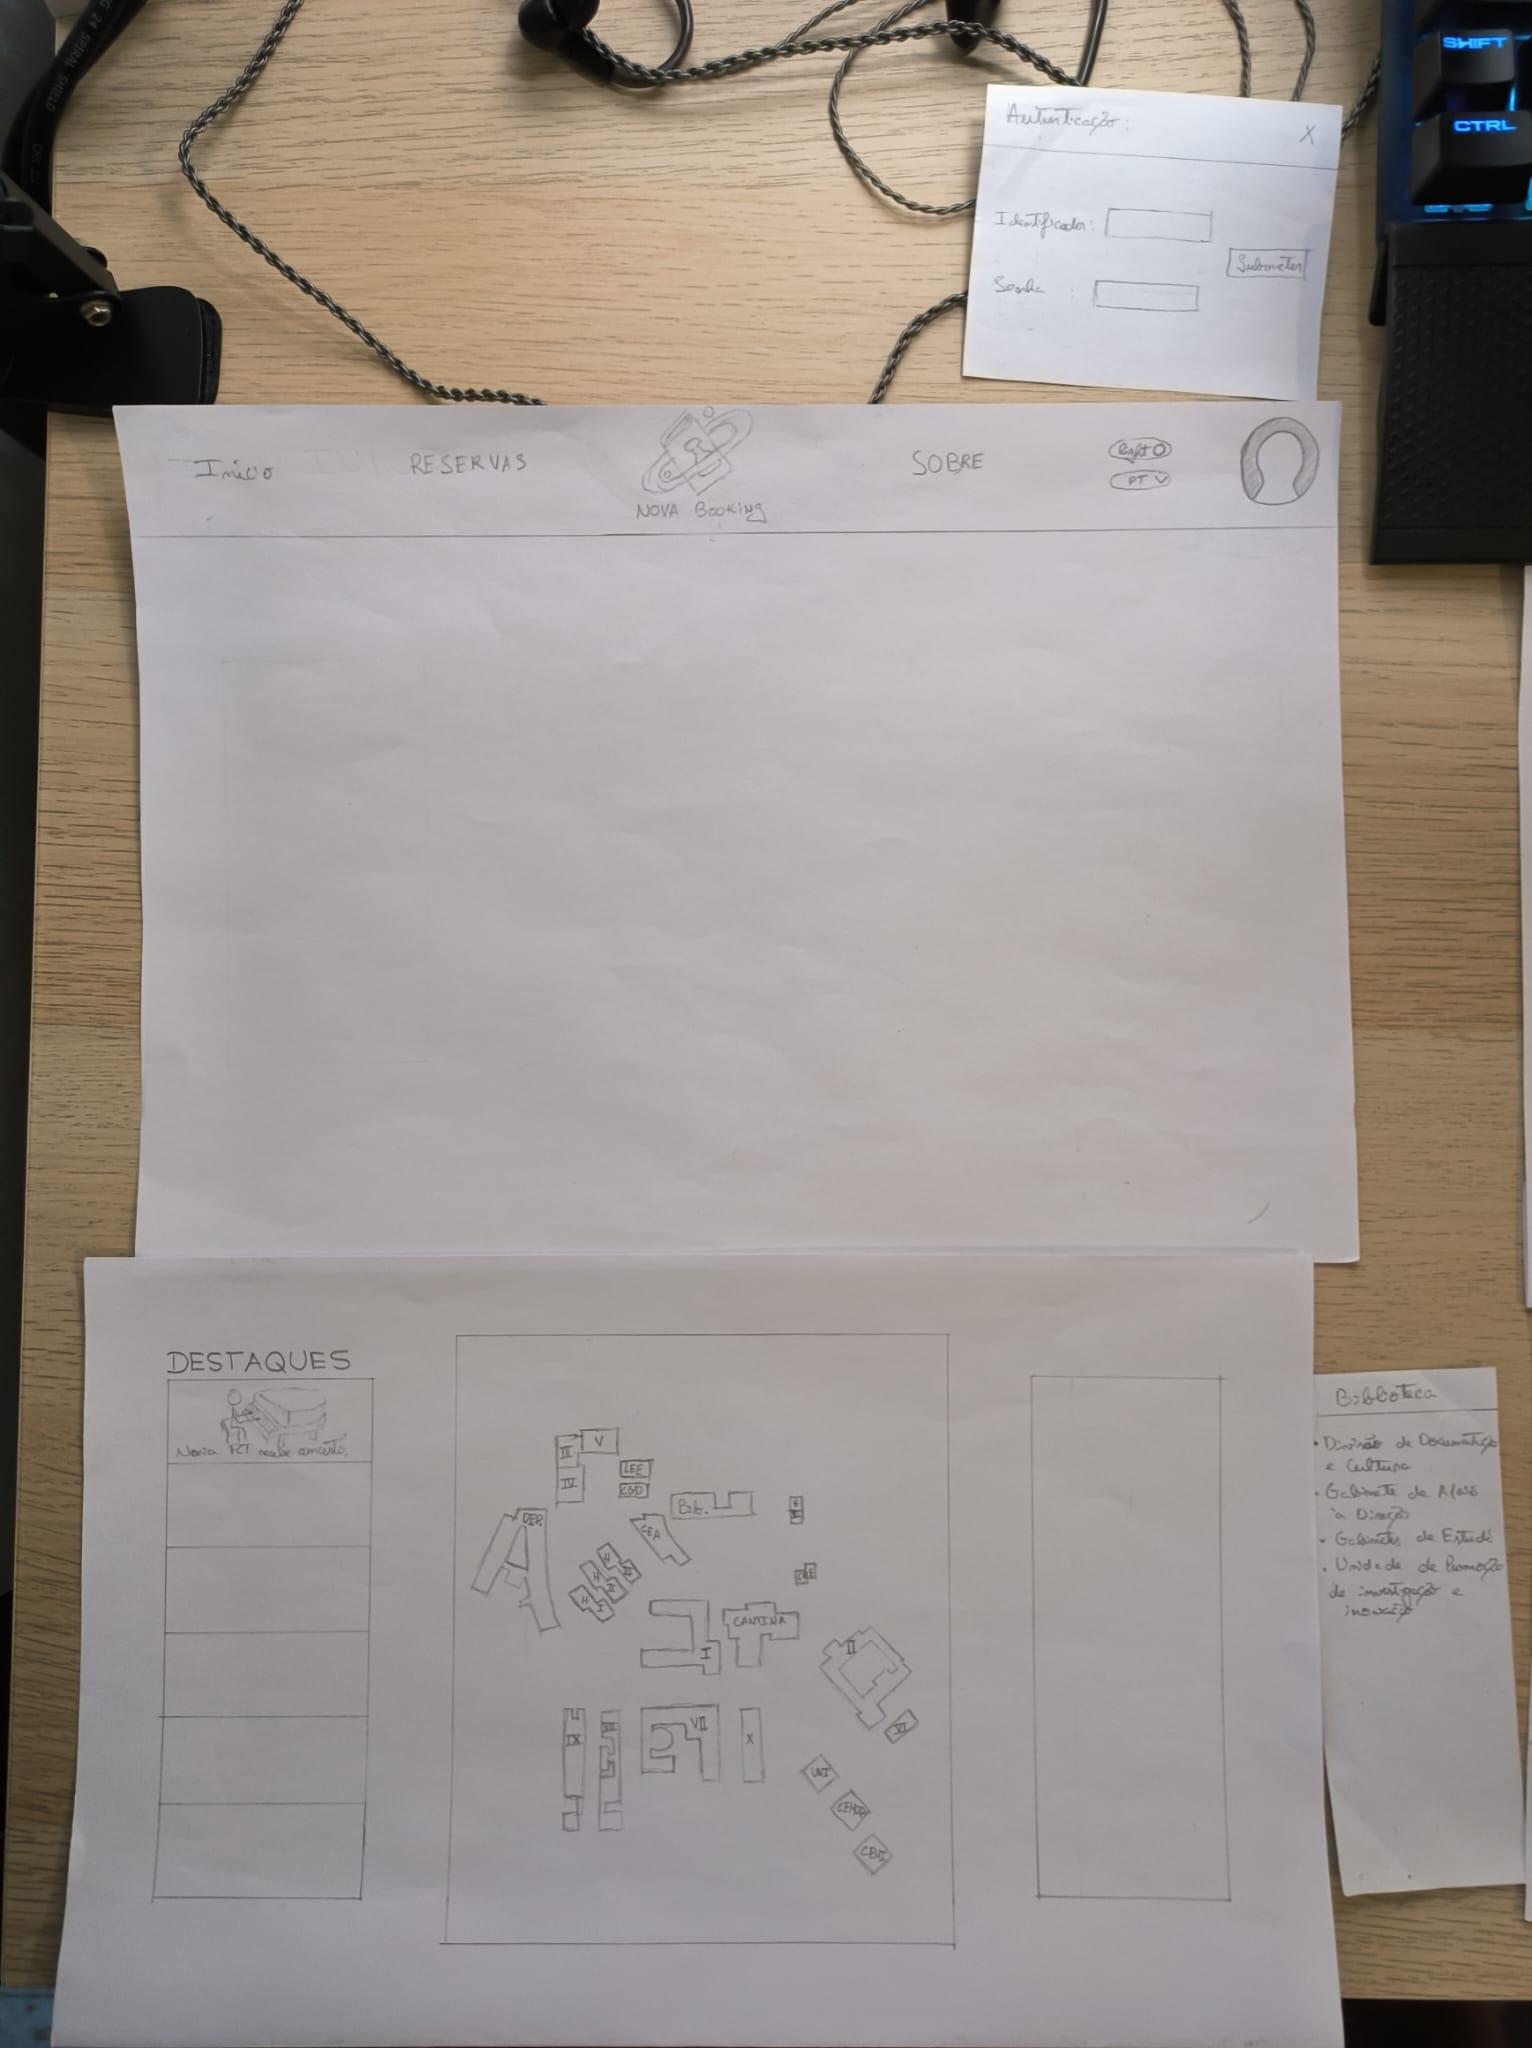 SHIFT
CTRL
Autenticação: X
Identificador:
Submeter
Senha :
Início RESERVAS SOBRE
light
PT
NOVA BOOKING
DESTAQUES
Nova FCT recebe concerto!
V
III
IV
LEE
CGD
Bib.
DEP.
CEA
H
H
H
I
CANTINA
I
II
VI
IX
VIII
VII
X
UNI
CEMOP
CENI
Biblioteca
• Divisão de Documentação
e Cultura
• Gabinete de Apoio
à Direção
• Gabinetes de Estudo
• Unidade de Promoção
de investigação e
inovação